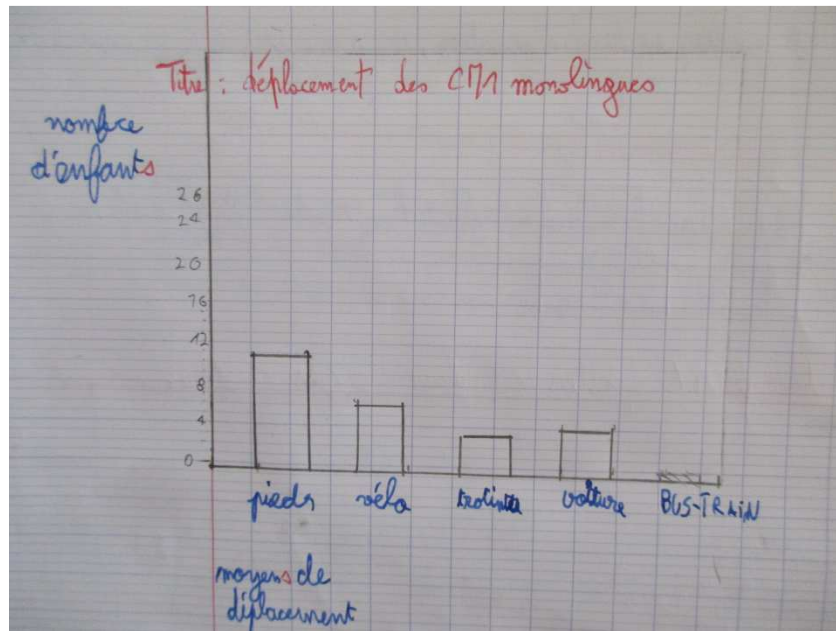 Titre : déplacement des CM1 monolingues
nombre
d'enfants
26
24
20
16
12
8
4
0
pieds vélo trotinette voiture BUS-TRAIN
moyens de
déplacement